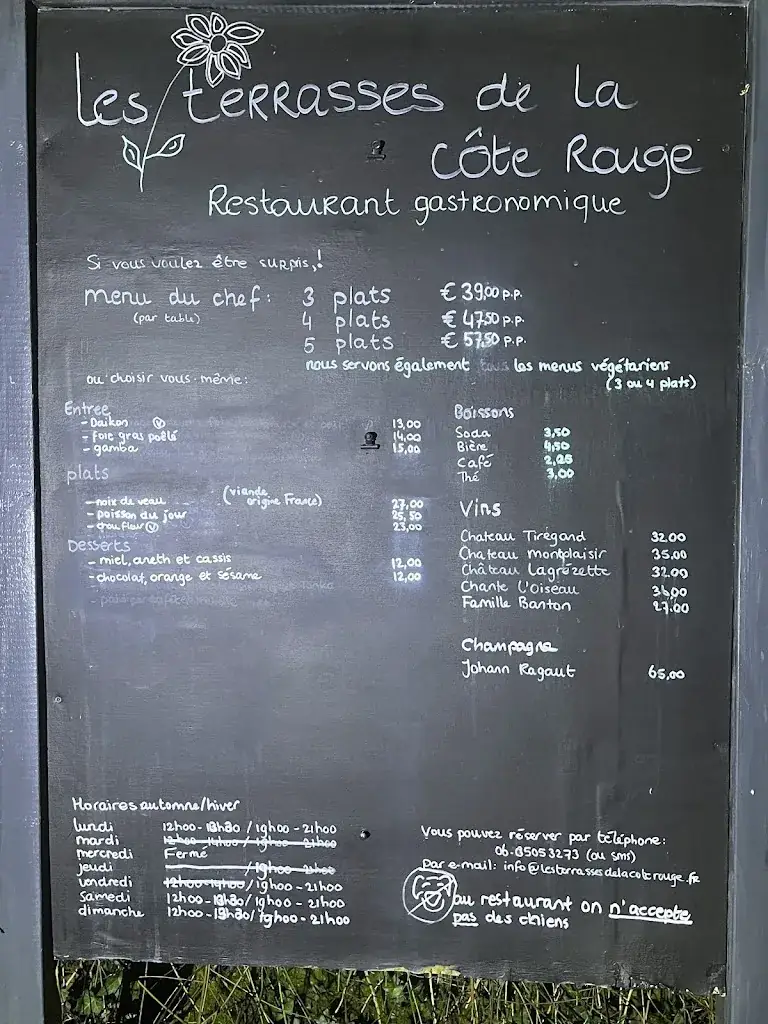 Les terrasses de la
côte Rouge
Restaurant gastronomique
Si vous voulez être surpris,!
menu du chef: 3 plats € 39,00 p.p.
(par table) 4 plats € 47,50 p.p.
5 plats € 57,50 p.p.
nous servons également les menus végétariens
(3 ou 4 plats)
ou choisir vous-même:
Entree
- Daikon V 13,00
- foie gras poêlé 14,00
- gamba 15,00
plats
- noix de veau (viande origine France) 27,00
- poisson du jour 25,50
- choufleur V 23,00
Desserts
- miel, aneth et cassis 12,00
- chocolat, orange et sésame 12,00
Boissons
Soda 3,50
Bière 4,50
Café 2,25
Thé 3,00
Vins
Chateau Tiregand 32.00
Chateau montplaisir 35.00
Château Lagrézette 32.00
Chante l'Oiseau
Famille Banton 27.00
Champagne
Johann Ragaut 65,00
Horaires automne/hiver
lundi 12h00 - 13h30 / 19h00 - 21h00
mardi 12h00 - 14h00 / 19h00 - 21h00
mercredi Fermé
jeudi / 19h00 - 21h00
vendredi 12h00 - 14h00 / 19h00 - 21h00
samedi 12h00 - 13h30 / 19h00 - 21h00
dimanche 12h00 - 13h30 / 19h00 - 21h00
Vous pouvez réserver par téléphone:
06-85053273 (ou sms)
par e-mail: info@lesterrassesdelacoterouge.fr
au restaurant on n'accepte
pas des chiens